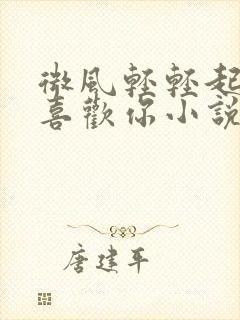 微風輕輕起
喜歡你小說
唐建平